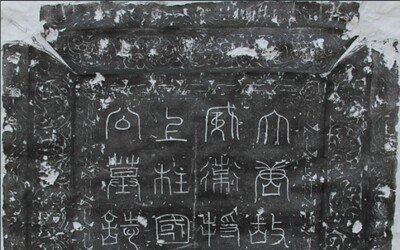 大唐故
威衛將
上柱國
公墓誌